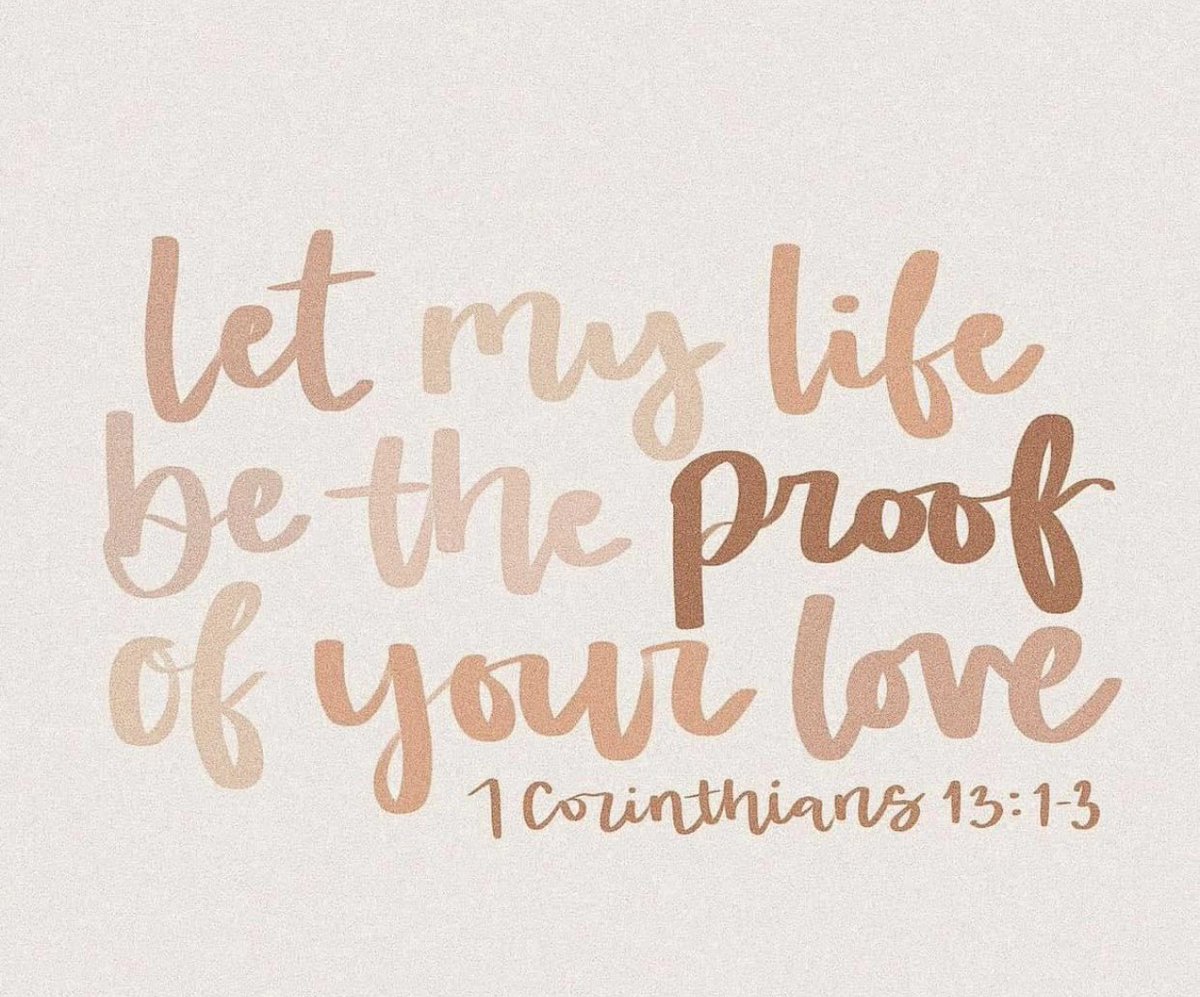 let my life
be the proof
of your love
1 Corinthians 13:1-3